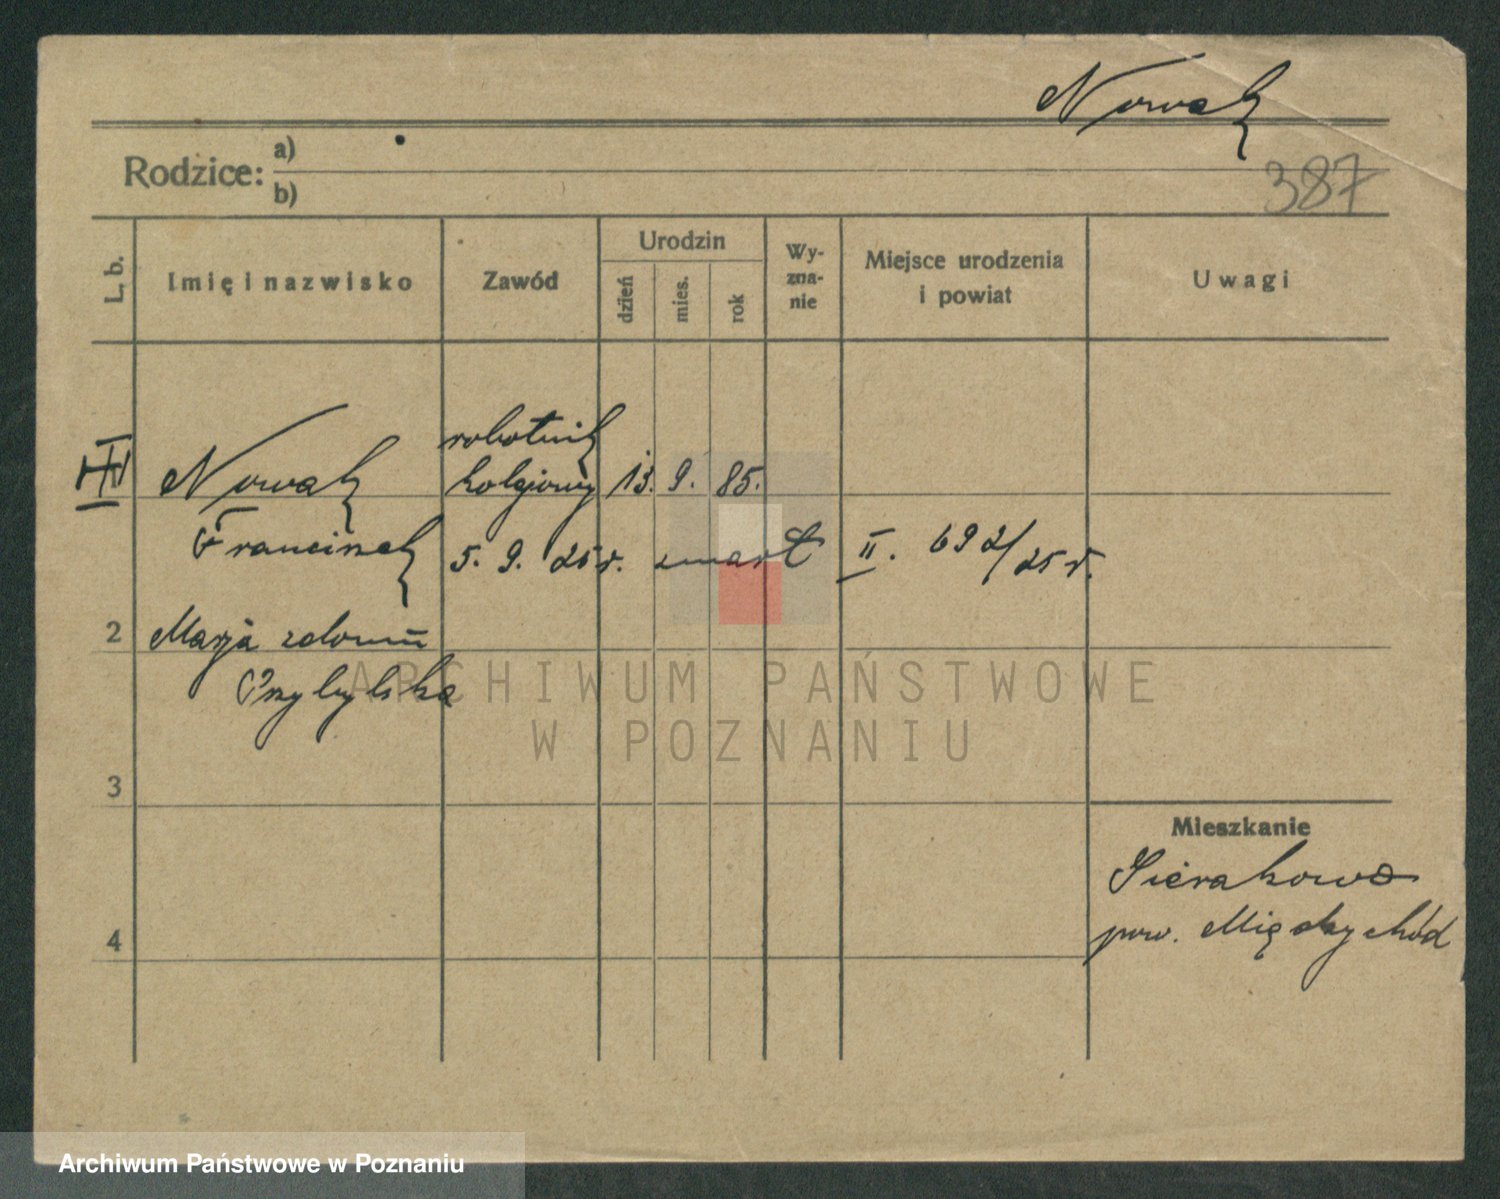 Nowak
Rodzice: a)
b)
387
L. b.
Imię i nazwisko
Zawód
Urodzin
dzień
mies.
rok
Wy-
zna-
nie
Miejsce urodzenia
i powiat
Uwagi
robotnik
III Nowak kolejowy 13. 9. 85.
Franciszek 5. 9. 25 r. zmarł II. 692/25 r.
2 Marja z domu
Przybylska
ARCHIWUM PAŃSTWOWE
W POZNANIU
3
Mieszkanie
Sierakowo
pow. Międzychód
4
Archiwum Państwowe w Poznaniu